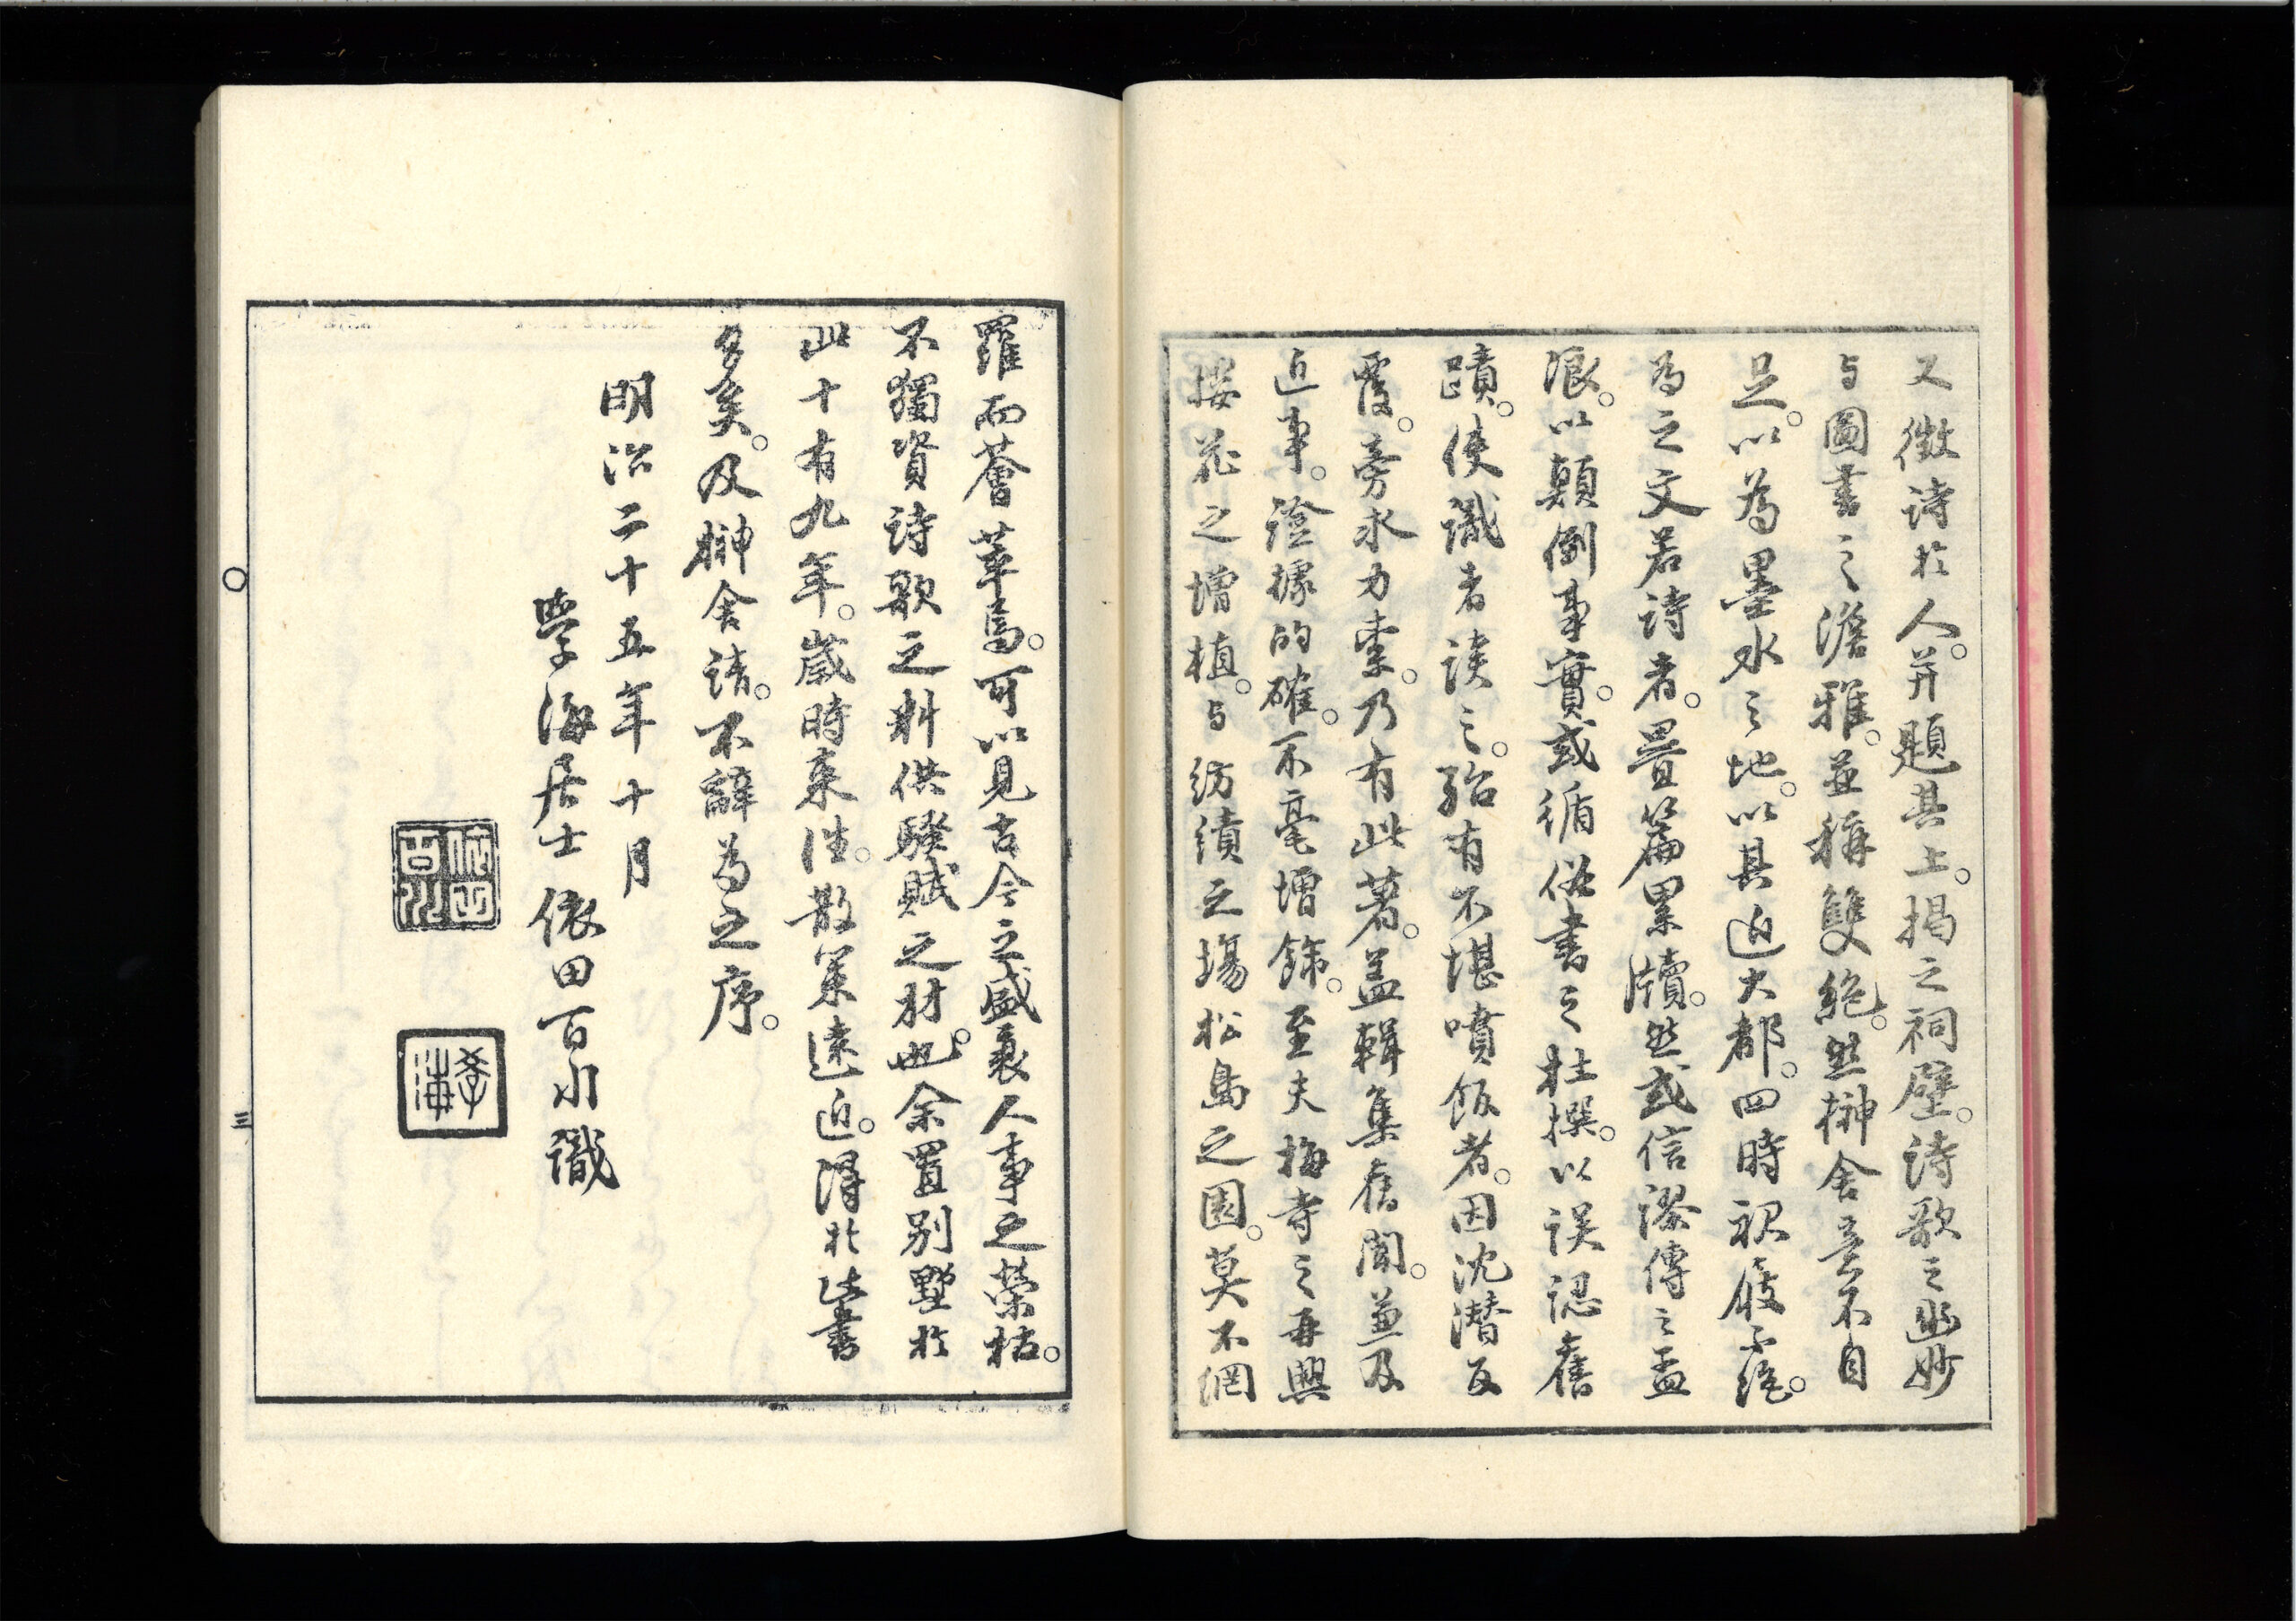 又徵詩於人。并題其上。掲之祠壁。詩歌之幽妙
与圖書之澹雅。並稱雙絶。然榊舎意不自
足。以為墨水之地。以其近大都。四時袨屐不絶。
為之文若詩者。疊篇累牘。然或信謬傳之孟
浪。以顛倒事實。或循俗書之杜撰。以誤認舊
蹟。使識者读之。殆有不堪噴飯者。因沈潜反
覆。旁求力索。乃有此著。盖輯集舊聞。兼及
近事。證據的確。不毫增餙。至夫梅寺之再興
接花之増植。与紡績之塲松島之園。莫不網
羅而薈萃焉。可以見古今之盛衰人事之榮枯。
不獨資詩歌之料供騷賦之材也。余置别墅於
此十有九年。歳時来往。散策遠近。得於此書
多矣。及榊舎請。不辭為之序。
明治二十五年十月
學海居士依田百川識
依田百川
學海
三